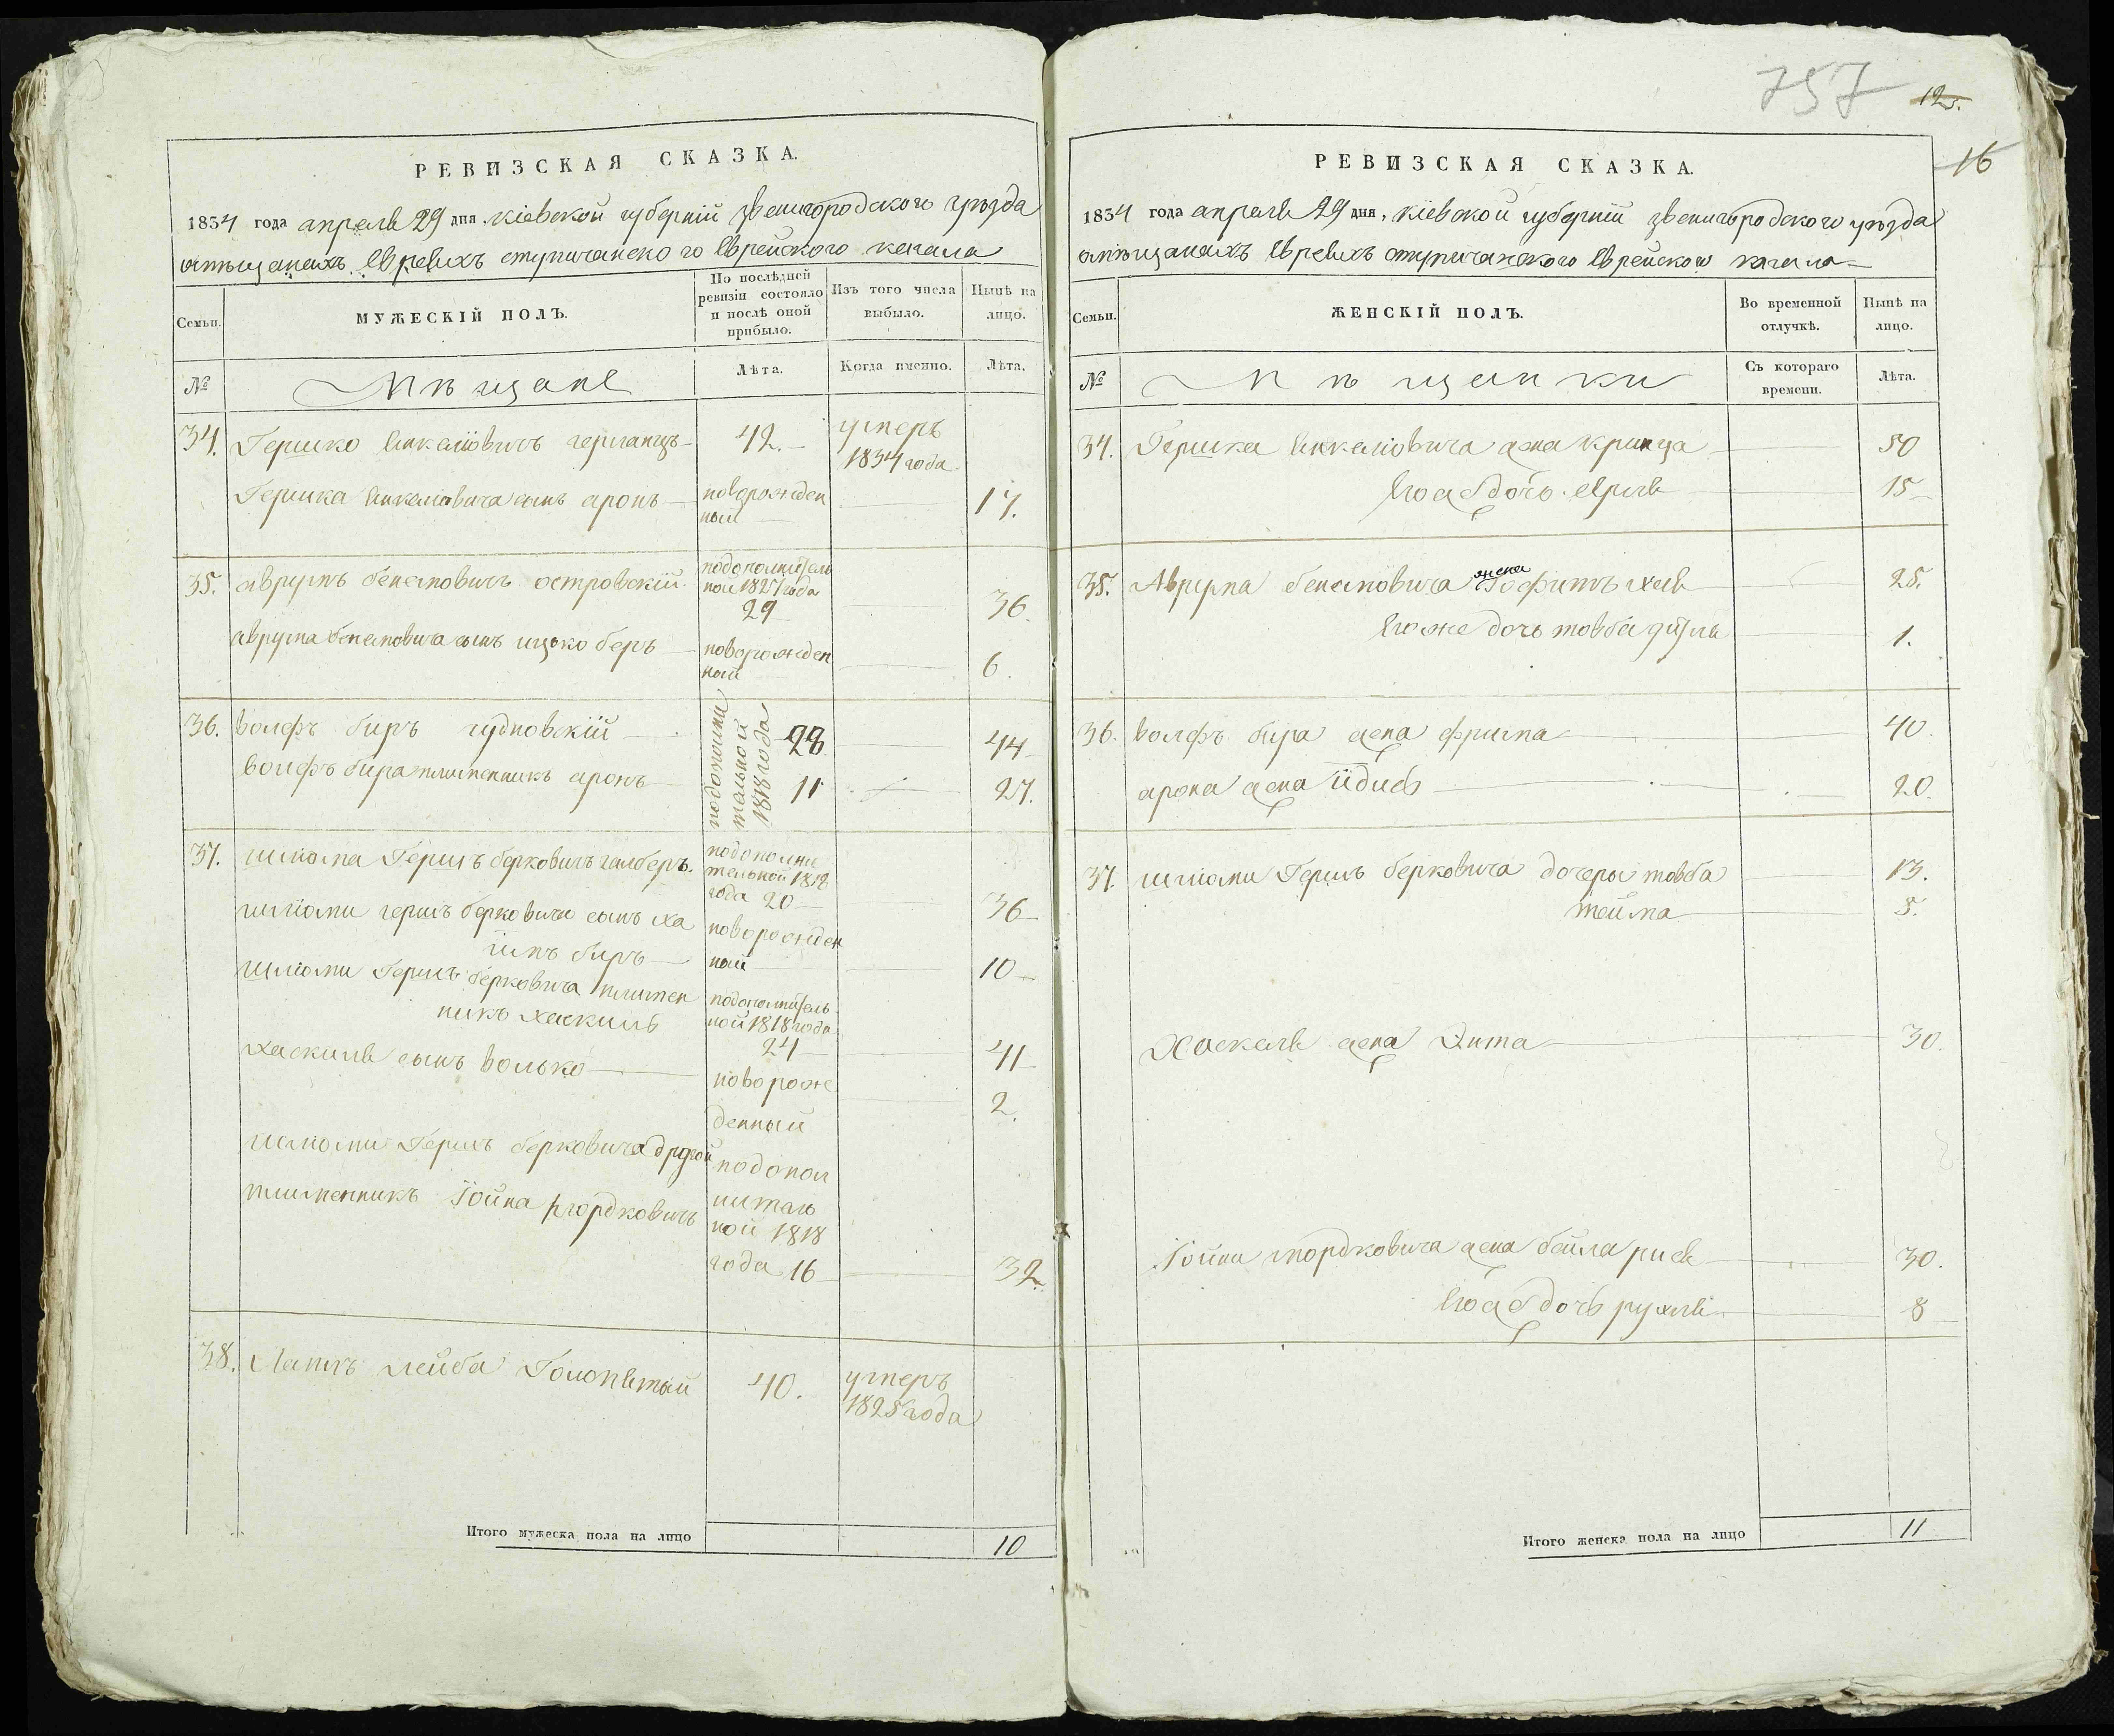 РЕВИЗСКАЯ СКАЗКА.
1834 года апреля 29 дня, Кіевской губерній звенигородского уѣзда
омѣщанахъ Евреихъ стуричанского Еврейского кагала
Семьи.
МУЖЕСКІЙ ПОЛЪ.
По послѣдней ревизіи состояло и послѣ оной прибыло.
Изъ того числа выбыло.
Нынѣ на лицо.
№
Мѣщане
Лѣта.
Когда именно.
Лѣта.
34. Гершко Янкеліовичъ 42. умеръ 1834 года
Гершка Янкеліовича сынъ аронъ новорожденный 17.
35. аврумъ беніаминовичъ островскій подополнительной 1827 года 29 36.
аврума сынъ ицько беръ новорожденный 6.
36. волфъ биръ чудновскій подополнительной 1818 года 28 44
волфъ бира племенникъ аронъ 11 27.
37. шліома Гершъ берковичъ подополнительной 1818 года 20 36
шліоми гершъ берковича сынъ хаимъ биръ новорожденный 10
шліоми Гершъ берковича племенникъ хаскиль подополнительной 1818 года 24 41
хаскиля сынъ волько новорожденный 2.
шліоми Гершъ берковича другой
племенникъ Іойна мордковичъ подополнитальной 1818 года 16 32
38. лейба Голопятый 40. умеръ 1825 года
Итого мужеска пола на лицо 10
757
12.
16
РЕВИЗСКАЯ СКАЗКА.
1834 года апреля 29 дня, Кіевской губерній звенигородского уѣзда
омѣщанахъ Евреихъ стуричанского Еврейского кагала
Семьи.
ЖЕНСКІЙ ПОЛЪ.
Во временной отлучкѣ.
Нынѣ на лицо.
№
Мѣщанки
Съ котораго времени.
Лѣта.
34. Гершка Янкеліовича жена Крейнца 50
Егожъ дочь 15
35. Аврума жена 25.
Егоже дочь товба 1.
36. волфъ бира жена фрима 40.
арона жена 20.
37. шліоми Гершъ берковича дочеры товба 13.
тейма 5.
Хаскеля жена Энта 30.
Іойни мордковича жена бейла 30.
Егожъ дочь рухля 8
Итого женска пола на лицо 11